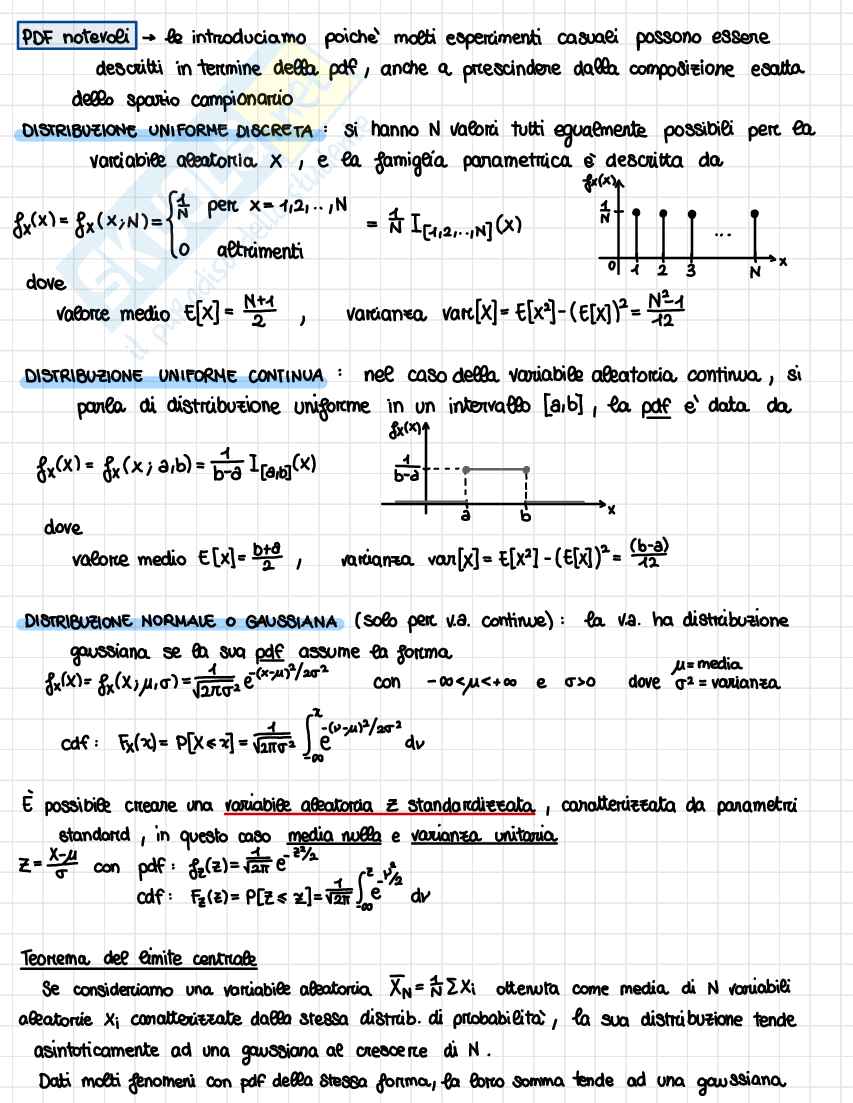 PDF notevoli → le introduciamo poichè molti esperimenti casuali possono essere
descritti in termine della pdf, anche a prescindere dalla composizione esatta
dello spazio campionario
DISTRIBUZIONE UNIFORME DISCRETA : si hanno N valori tutti egualmente possibili per la
variabile aleatoria X , e la famiglia parametrica è descritta da
fx(x) = fx(x;N) = { 1/N per x=1,2,..,N = 1/N I[1,2,..,N](x)
0 altrimenti
fx(x)
1/N
...
0 1 2 3 N x
dove
valore medio E[X] = N+1/2 , varianza var[X] = E[X²]-(E[X])² = N²-1/12
DISTRIBUZIONE UNIFORME CONTINUA : nel caso della variabile aleatoria continua, si
parla di distribuzione uniforme in un intervallo [a,b], la pdf e' data da
fx(x)
fx(x) = fx(x; a,b) = 1/b-a I[a,b](x)
1/b-a
a b x
dove
valore medio E[X] = b+a/2 , varianza var[x] = E[X²]-(E[X])² = (b-a)/12
DISTRIBUZIONE NORMALE o GAUSSIANA (solo per v.a. continue) : la v.a. ha distribuzione
gaussiana se la sua pdf assume la forma
fx(x) = fx(x;μ,σ) = 1/√2πσ² e^-(x-μ)²/2σ² con -∞<μ<+∞ e σ>0 dove μ = media
σ² = varianza
cdf : Fx(x) = P[X≤x] = 1/√2πσ² ∫_-∞^x e^-(ν-μ)²/2σ² dν
È possibile creare una variabile aleatoria z standardizzata , caratterizzata da parametri
standard , in questo caso media nulla e varianza unitaria
Z = X-μ/σ con pdf : fz(z) = 1/√2π e^-z²/2
cdf : Fz(z) = P[Z≤z] = 1/√2π ∫_-∞^z e^-ν²/2 dν
Teorema del limite centrale
Se consideriamo una variabile aleatoria X̄N = 1/N ΣXi ottenuta come media di N variabili
aleatorie Xi caratterizzate dalla stessa distrib. di probabilità, la sua distribuzione tende
asintoticamente ad una gaussiana al crescere di N .
Dati molti fenomeni con pdf della stessa forma, la loro somma tende ad una gaussiana